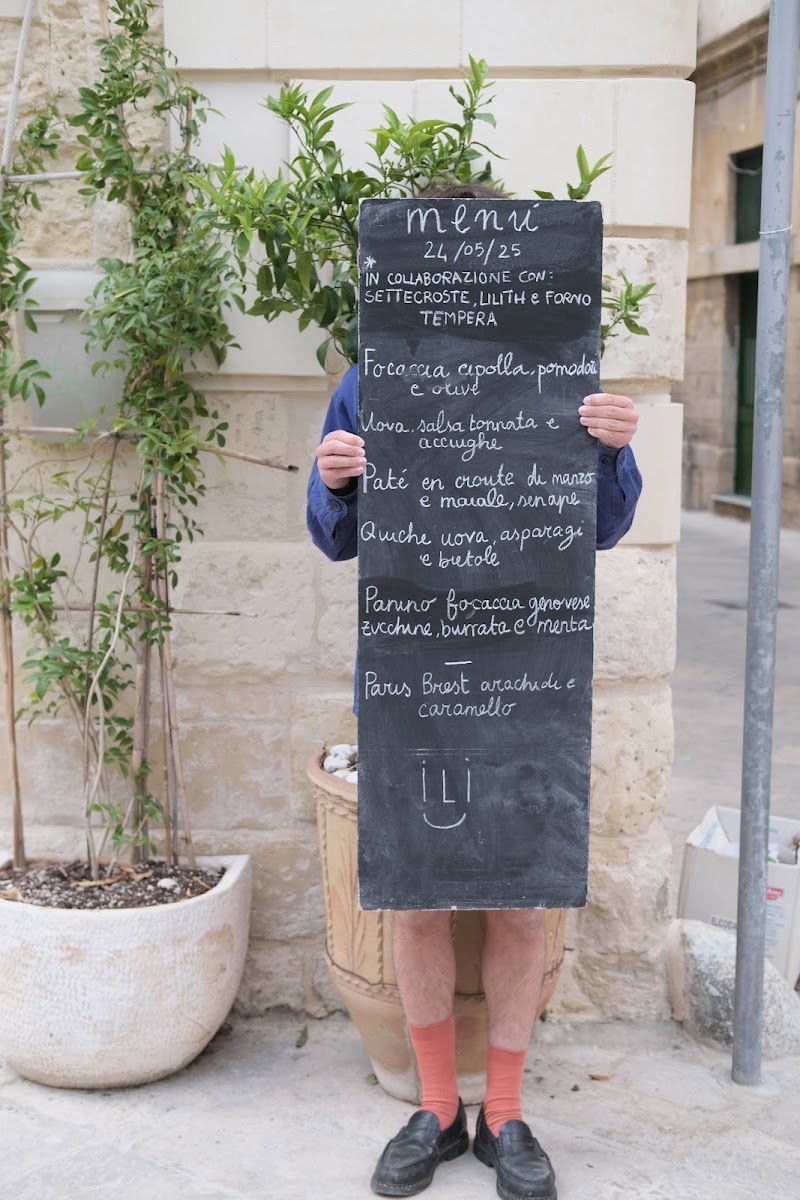 menú
24/05/25
* IN COLLABORAZIONE CON:
SETTECROSTE, LILITH e FORNO
TEMPERA
Focaccia cipolla, pomodori
e olive
Uova, salsa tonnata e
acciughe
Paté en croute di manzo
e maiale, senape
Quiche uova, asparagi
e bietole
Panino focaccia genovese
zucchine, burrata e menta
—
Paris Brest arachidi e
caramello
iLi